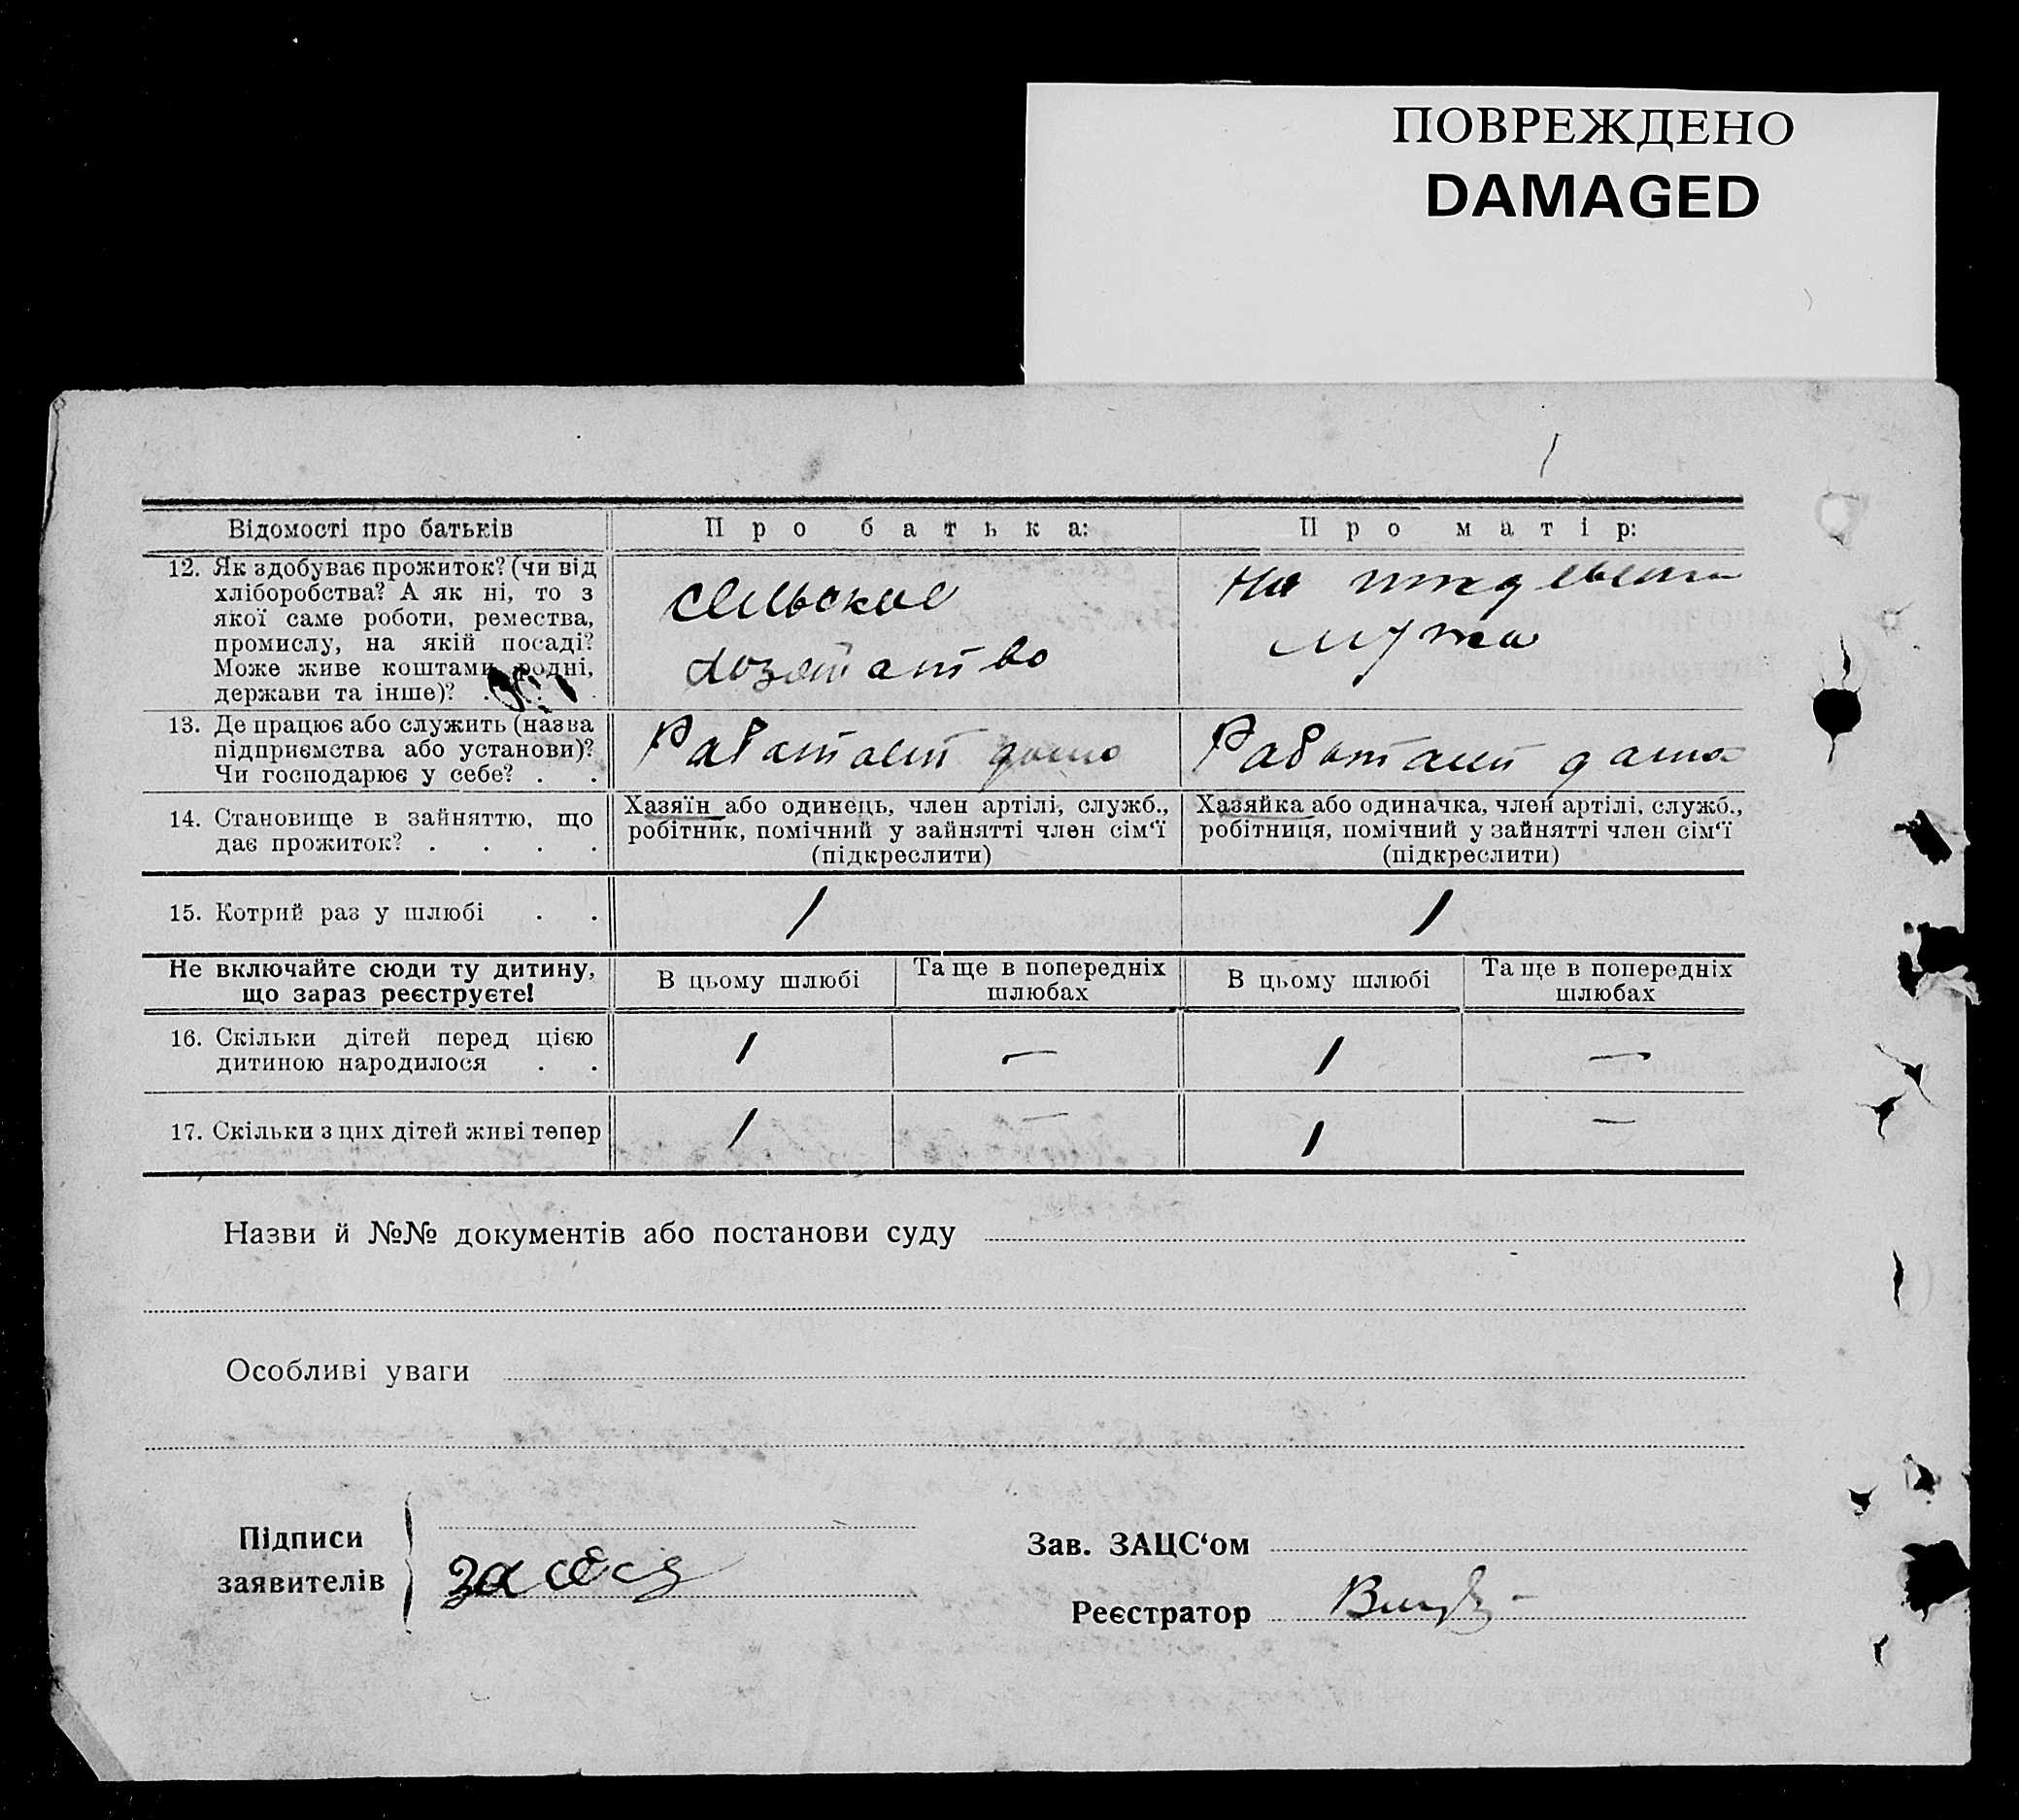 ПОВРЕЖДЕНО
DAMAGED
Відомості про батьків
Про батька:
Про матір:
12. Як здобуває прожиток? (чи від
хліборобства? А як ні, то з
якої саме роботи, ремества,
промислу, на якій посаді?
Може живе коштами родні,
держави та інше)? .
сельское
хозяйство
На иждевени
мужа
13. Де працює або служить (назва
підприємства або установи)?
Чи господарює у себе? . .
Работает дома
Работает дома
14. Становище в зайняттю, що
дає прожиток? . . . .
Хазяїн або одинець, член артілі, служб.,
робітник, помічний у зайнятті член сім‘ї
(підкреслити)
Хазяйка або одиначка, член артілі, служб.,
робітниця, помічний у зайнятті член сім‘ї
(підкреслити)
15. Котрий раз у шлюбі . .
1
1
Не включайте сюди ту дитину,
що зараз реєструєте!
В цьому шлюбі
Та ще в попередніх
шлюбах
В цьому шлюбі
Та ще в попередніх
шлюбах
16. Скільки дітей перед цією
дитиною народилося . .
1
—
1
—
17. Скільки з цих дітей живі тепер
1
—
1
—
Назви й №№ документів або постанови суду
Особливі уваги
Підписи
заявителів
Зав. ЗАЦС‘ом
Реєстратор